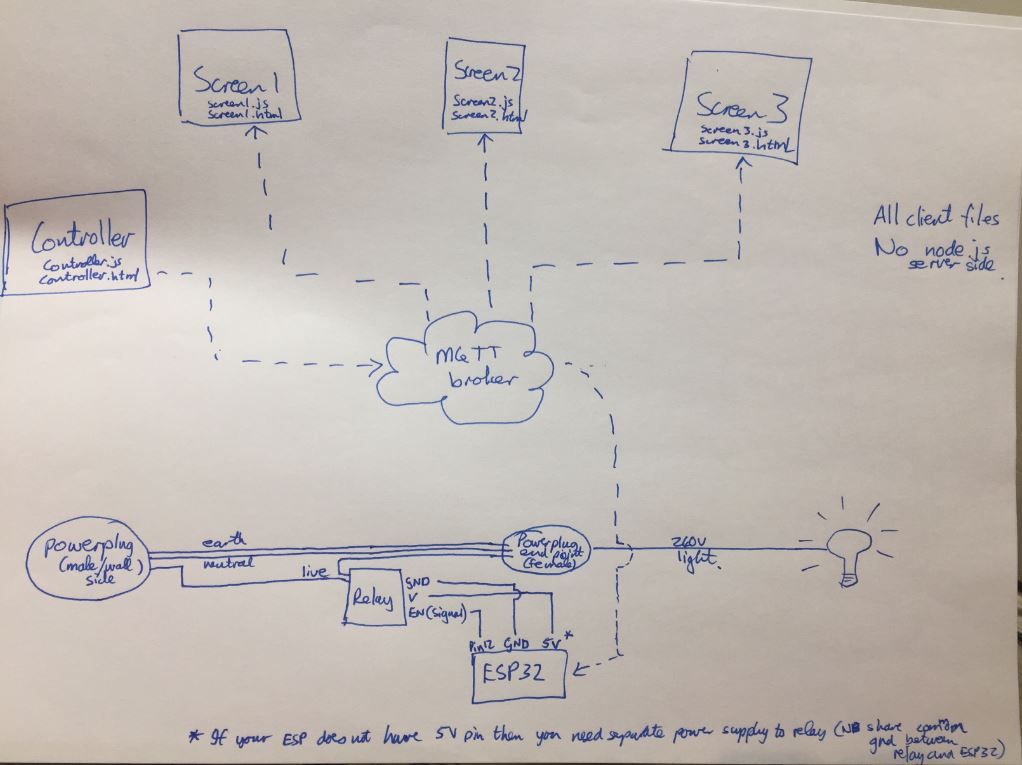 Screen 1
screen1.js
screen1.html
Screen 2
Screen2.js
screen2.html
Screen 3
screen3.js
screen3.html
Controller
Controller.js
controller.html
All client files
No node.js
server side.
MQTT
broker
Powerplug
(male/wall)
side
earth
neutral
live
Powerplug
end point
(female)
240V
light.
Relay
GND
V
EN(signal)
Pin12 GND 5V*
ESP32
* If your ESP does not have 5V pin then you need separate power supply to relay (NB share common
gnd between
relay and ESP32)